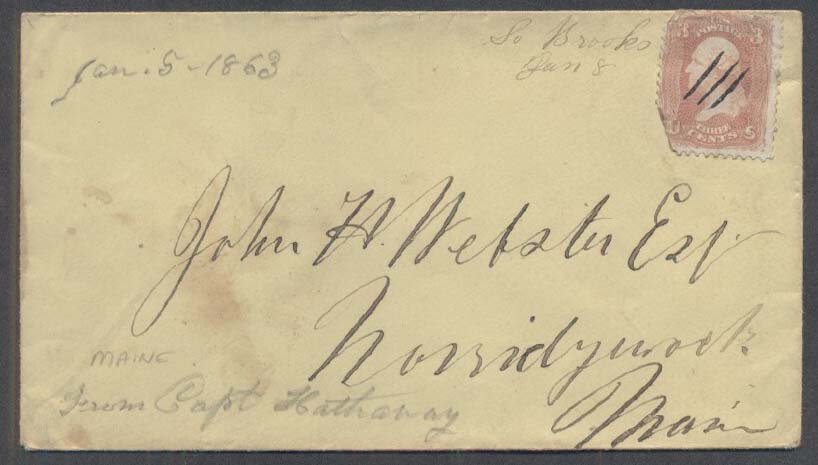 So Brooks
Jan 8
Jan. 5 - 1863
3 POSTAGE 3
U THREE CENTS S
John H. Webster Esq.
Norridgwock
Main
MAINE
From Capt Hathaway